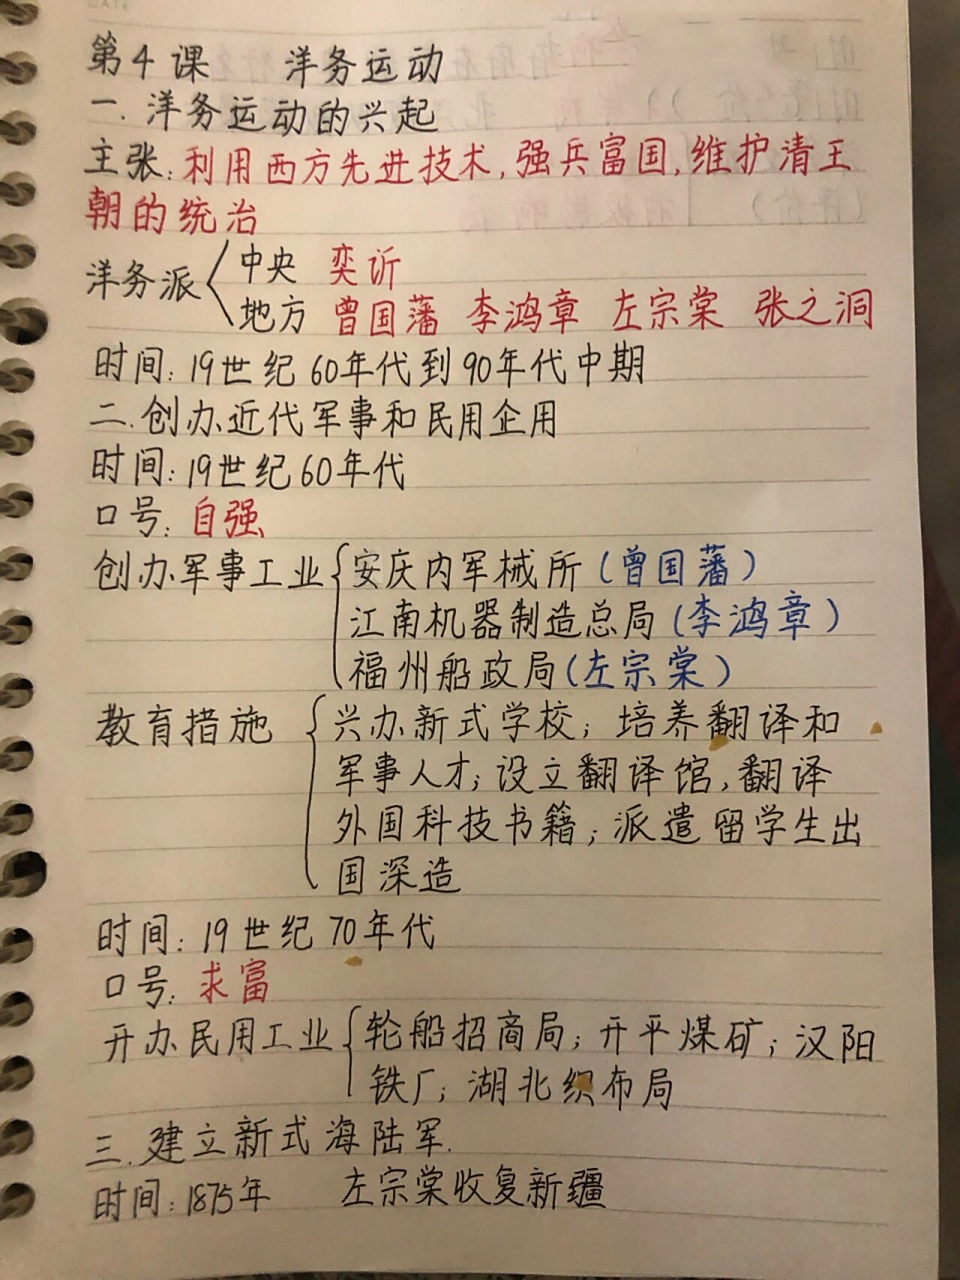 第4课 洋务运动
一.洋务运动的兴起
主张:利用西方先进技术,强兵富国,维护清王
朝的统治
洋务派
中央 奕䜣
地方 曾国藩 李鸿章 左宗棠 张之洞
时间:19世纪60年代到90年代中期
二.创办近代军事和民用企用
时间:19世纪60年代
口号:自强
创办军事工业
安庆内军械所(曾国藩)
江南机器制造总局(李鸿章)
福州船政局(左宗棠)
教育措施
兴办新式学校;培养翻译和
军事人才;设立翻译馆,翻译
外国科技书籍;派遣留学生出
国深造
时间:19世纪70年代
口号:求富
开办民用工业
轮船招商局;开平煤矿;汉阳
铁厂;湖北织布局
三.建立新式海陆军.
时间:1875年 左宗棠收复新疆